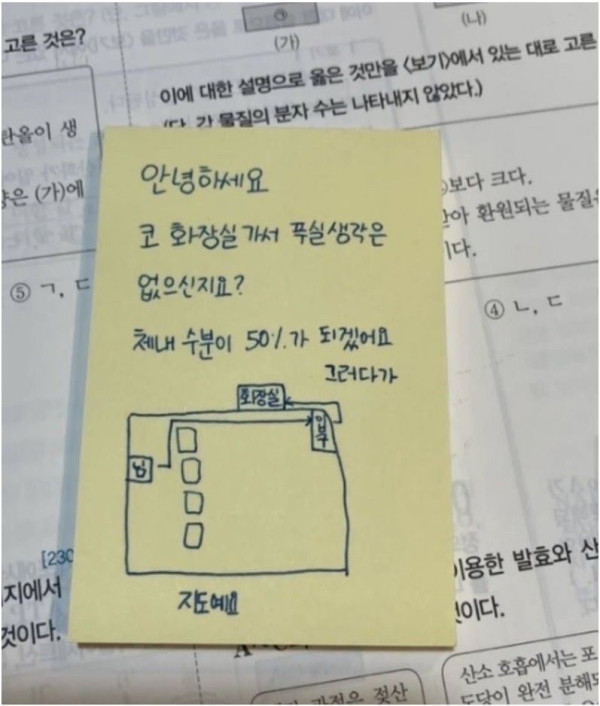 고른 것은?
(가)
(나)
이에 대한 설명으로 옳은 것만을 <보기>에서 있는 대로 고른
(단, 각 물질의 분자 수는 나타내지 않았다.)
탄올이 생
양은 (가)에
보다 크다.
받아 환원되는 물질은
이다.
⑤ ㄱ, ㄷ
④ ㄴ, ㄷ
안녕하세요
코 화장실가서 푹실생각은
없으신지요?
체내 수분이 50%가 되겠어요
그러다가
화장실
입구
님
지도예요
[230
지에서
것이다.
이용한 발효와 산
것이다.
산소 호흡에서는 포
도당이 완전 분해되
과정은 젖산